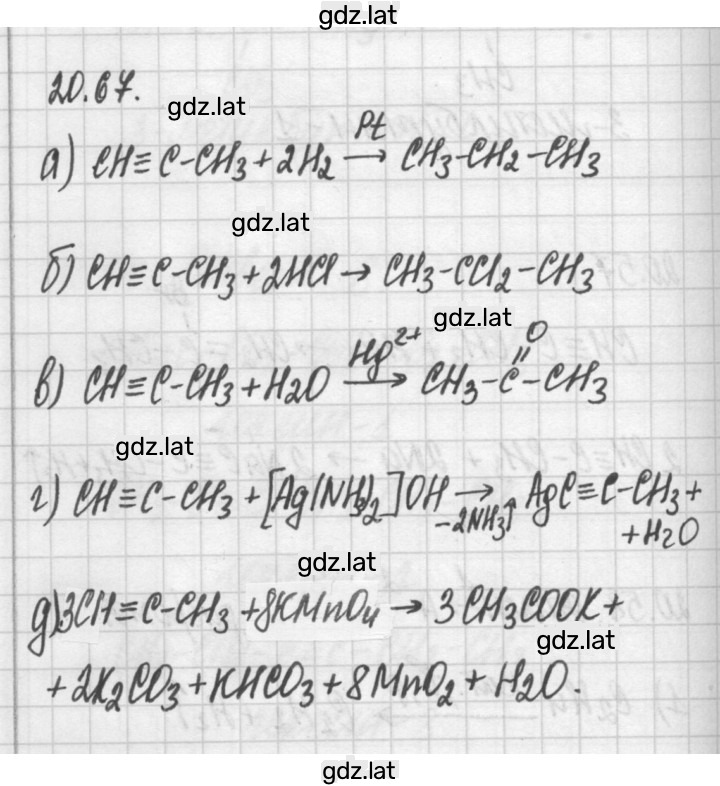 gdz.lat
20.67.
gdz.lat
а) CH≡C-CH3+2H2 —Pt→ CH3-CH2-CH3
gdz.lat
б) CH≡C-CH3+2HCl→ CH3-CCl2-CH3
gdz.lat
в) CH≡C-CH3+H2O —Hg2+→ CH3-C(=O)-CH3
gdz.lat
г) CH≡C-CH3+[Ag(NH3)2]OH → AgC≡C-CH3+
-2NH3↑
+H2O
gdz.lat
д) 3CH≡C-CH3 +8KMnO4 → 3CH3COOK+
gdz.lat
+2K2CO3+KHCO3+8MnO2+H2O.
gdz.lat